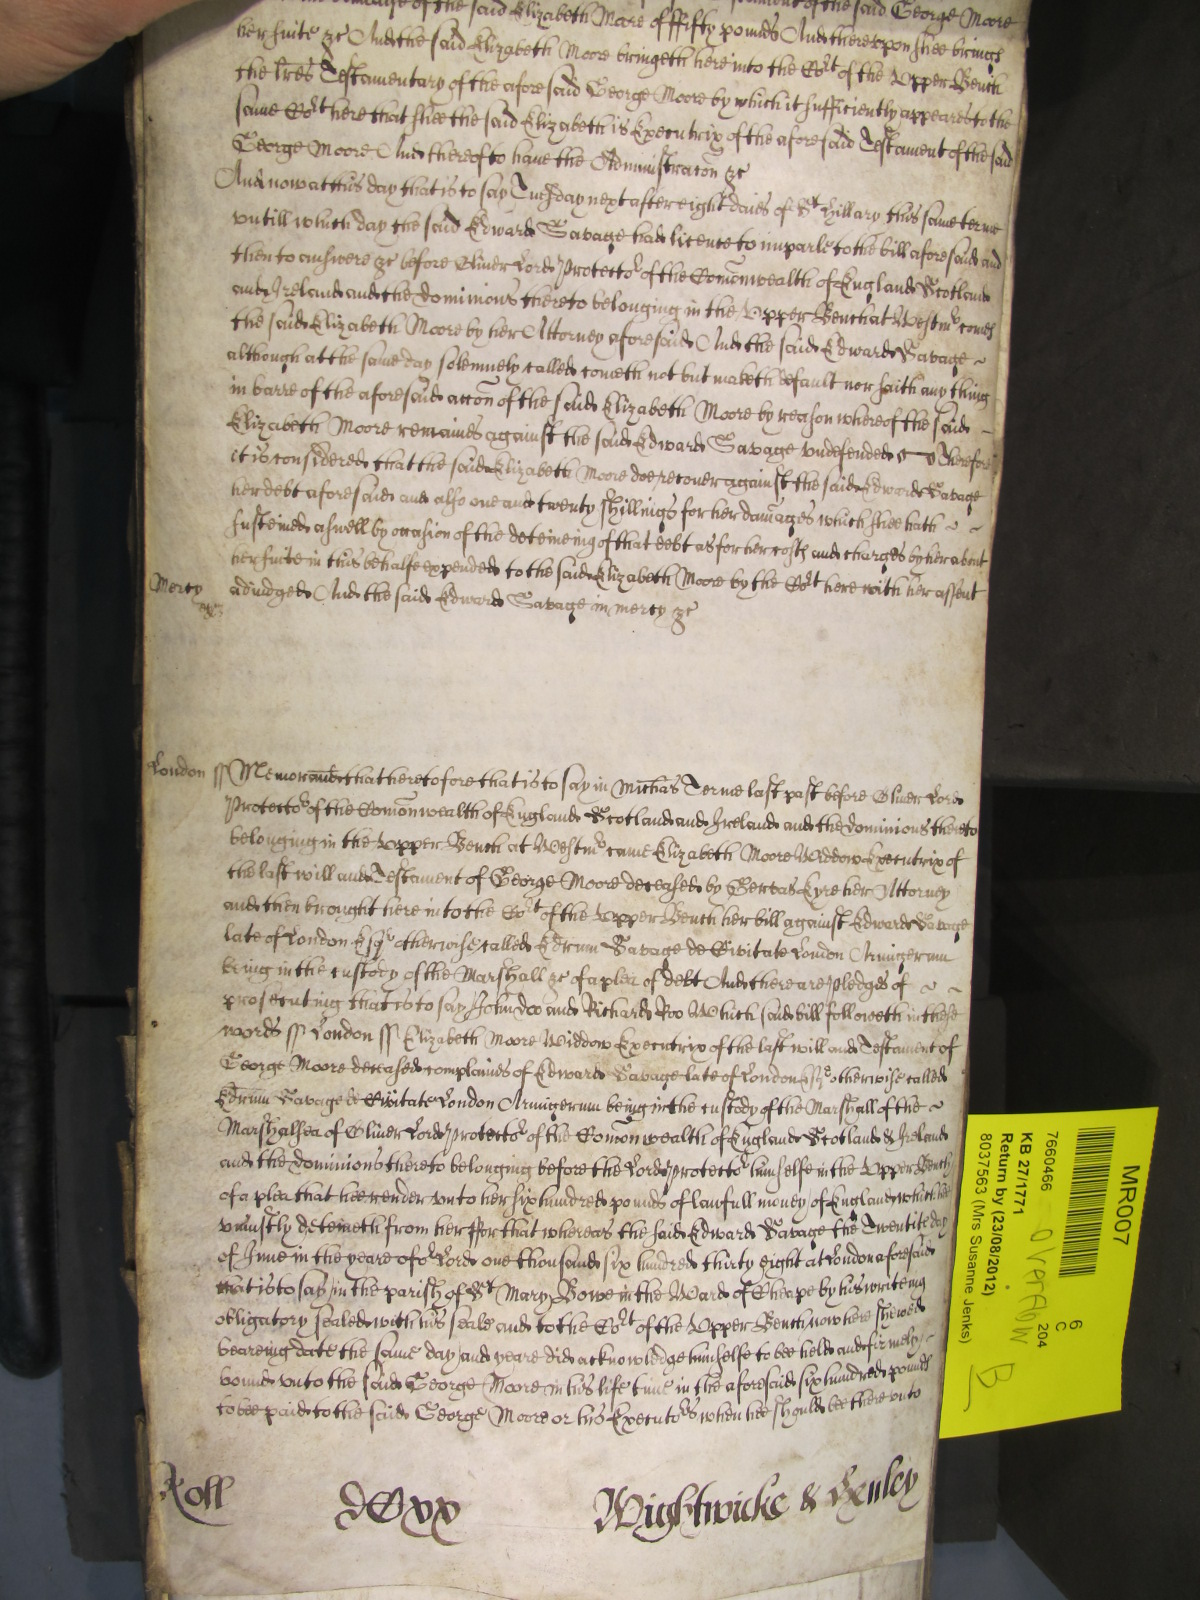 of the said Elizabeth Moore of ffifty pounds And thereupon shee brings
her suite &c And the said Elizabeth Moore bringeth here into the Cort of the Upper Bench
the lres Testamentary of the aforesaid George Moore by which it sufficiently appeares to the
same Cort here that shee the said Elizabeth is Executrix of the aforesaid Testament of the said
George Moore And thereof to have the Administracon &c
And now at this day that is to say Tuesday next after eight daies of St Hillary this same terme
untill which day the said Edward Savage had licence to imparle to the bill aforesaid and
then to answere &c before Oliver Lord Protector of the Comonwealth of England Scotland
and Ireland and the dominions thereto belonging in the Upper Bench at Westmr comes
the said Elizabeth Moore by her Attorney aforesaid And the said Edward Savage ~
although at the same day solemnely called cometh not but maketh default nor saith any thing
in barre of the aforesaid accon of the said Elizabeth Moore by reason whereof the said
Elizabeth Moore remaines against the said Edward Savage undefended Therefore
it is considered that the said Elizabeth Moore doe recover against the said Edward Savage
her debt aforesaid and also one and twenty shillings for her damages which shee hath ~ ~
susteined aswell by occasion of the deteineing of that debt as for her costs and charges by her about
her suite in this behalfe expended to the said Elizabeth Moore by the Cort here with her assent
Mercy adiudged And the said Edward Savage in mercy &c
London ss Memorand that heretofore that is to say in Michas Terme last past before Oliver Lord
Protector of the Comonwealth of England Scotland and Ireland and the dominions thereto
belonging in the Upper Bench at Westmr came Elizabeth Moore Widdow Executrix of
the last will and Testament of George Moore deceased by Gervas Eyre her Attorney
and then brought here into the Cort of the Upper Bench her bill against Edward Savage
late of London Esqr otherwise called Edrum Savage de Civitate London Armigerum
being in the custody of the Marshall &c of a plea of debt And there are pledges of ~ ~
prosecuting that is to say John Doo and Richard Roo Which said bill followeth in these
words ss London ss Elizabeth Moore Widdow Executrix of the last will and Testament of
George Moore deceased complaines of Edward Savage late of London Esqr otherwise called
Edrum Savage de Civitate London Armigerum being in the custody of the Marshall of the ~
Marshalsea of Oliver Lord Protector of the Comonwealth of England Scotland & Ireland
and the dominions thereto belonging before the Lord Protector himselfe in the Upper Bench
of a plea that hee render unto her six hundred pounds of lawfull money of England which hee
uniustly deteineth from her ffor that whereas the said Edward Savage the Twentith day
of June in the yeare of or Lord one thousand six hundred thirty eight at London aforesaid
that is to say in the parish of St Mary Bowe in the Ward of Cheape by his writeing
obligatory sealed with his seale and to the Cort of the Upper Bench now here shewed
beareing date the same day and yeare did acknowledge himselfe to bee held and firmely
bound unto the said George Moore in his life time in the aforesaid six hundred pounds
to bee paid to the said George Moore or his Executors when hee should bee thereunto
Roll dCxx Wightwicke & Henley
MR007
6
C
204
7660466
KB 27/1771
Return by (23/08/2012)
8037563 (Mrs Susanne Jenks)